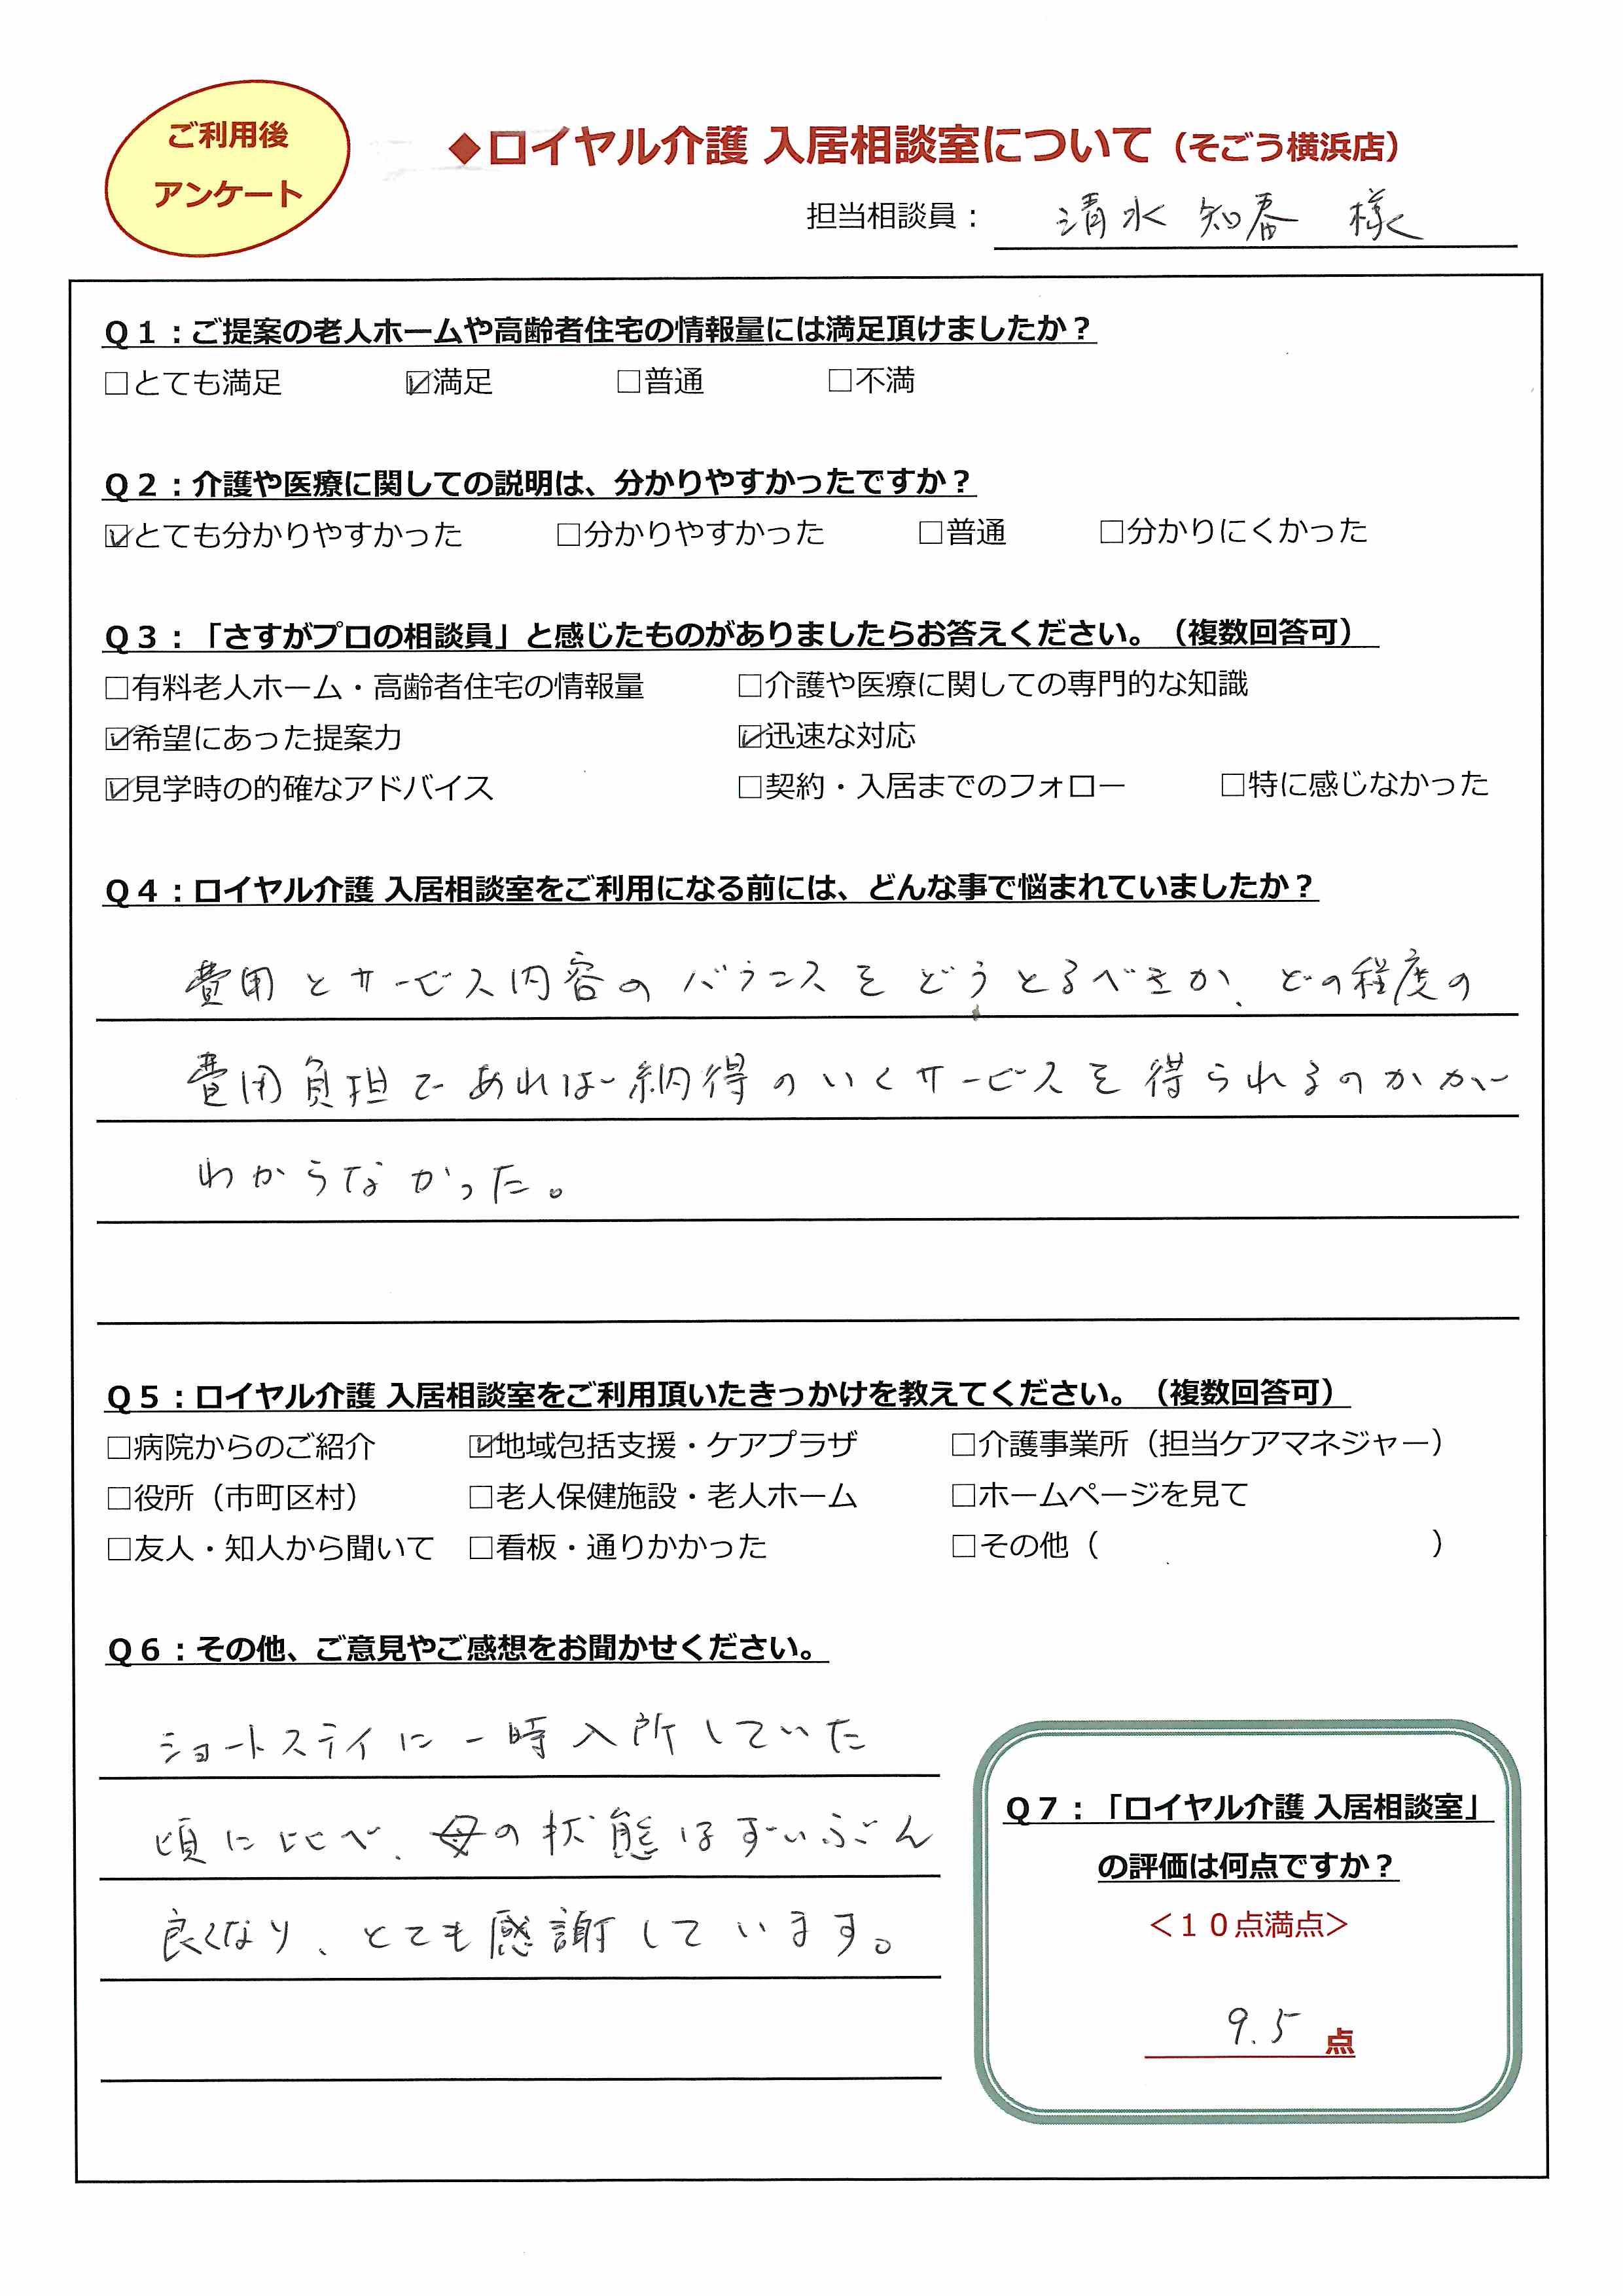 ご利用後
アンケート
◆ロイヤル介護 入居相談室について（そごう横浜店）
担当相談員： 清水 知春 様
Q１：ご提案の老人ホームや高齢者住宅の情報量には満足頂けましたか？
□とても満足 ☑満足 □普通 □不満
Q２：介護や医療に関しての説明は、分かりやすかったですか？
☑とても分かりやすかった □分かりやすかった □普通 □分かりにくかった
Q３：「さすがプロの相談員」と感じたものがありましたらお答えください。（複数回答可）
□有料老人ホーム・高齢者住宅の情報量 □介護や医療に関しての専門的な知識
☑希望にあった提案力 ☑迅速な対応
☑見学時の的確なアドバイス □契約・入居までのフォロー □特に感じなかった
Q４：ロイヤル介護 入居相談室をご利用になる前には、どんな事で悩まれていましたか？
費用とサービス内容のバランスをどうとるべきか、どの程度の
費用負担であれば納得のいくサービスを得られるのかが
わからなかった。
Q５：ロイヤル介護 入居相談室をご利用頂いたきっかけを教えてください。（複数回答可）
□病院からのご紹介 ☑地域包括支援・ケアプラザ □介護事業所（担当ケアマネジャー）
□役所（市町区村） □老人保健施設・老人ホーム □ホームページを見て
□友人・知人から聞いて □看板・通りかかった □その他（ ）
Q６：その他、ご意見やご感想をお聞かせください。
ショートステイに一時入所していた
頃に比べ、母の状態はずいぶん
良くなり、とても感謝しています。
Q７：「ロイヤル介護 入居相談室」
の評価は何点ですか？
＜１０点満点＞
9.5 点